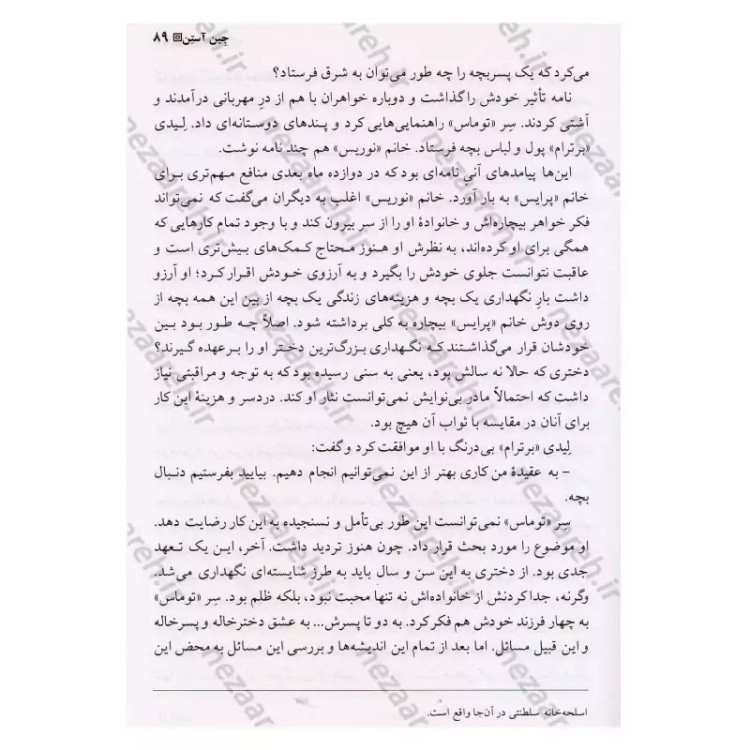 جین آستن ▣ ۸۹
می‌کرد که یک پسربچه را چه طور می‌توان به شرق فرستاد؟
نامه تأثیر خودش را گذاشت و دوباره خواهران با هم از درِ مهربانی درآمدند و
آشتی کردند. سِر «توماس» راهنمایی‌هایی کرد و پندهای دوستانه‌ای داد. لِیدی
«برترام» پول و لباس بچه فرستاد. خانم «نوریس» هم چند نامه نوشت.
این‌ها پیامدهای آنیِ نامه‌ای بود که در دوازده ماه بعدی منافع مهم‌تری برای
خانم «پرایس» به بار آورد. خانم «نوریس» اغلب به دیگران می‌گفت که نمی‌تواند
فکر خواهر بیچاره‌اش و خانوادهٔ او را از سر بیرون کند و با وجود تمام کارهایی که
همگی برای او کرده‌اند، به نظرش او هنوز محتاج کمک‌های بیش‌تری است و
عاقبت نتوانست جلوی خودش را بگیرد و به آرزوی خودش اقرار کرد؛ او آرزو
داشت بارِ نگهداری یک بچه و هزینه‌های زندگی یک بچه از بین این همه بچه از
روی دوش خانم «پرایس» بیچاره به کلی برداشته شود. اصلاً چه طور بود بین
خودشان قرار می‌گذاشتند که نگهداری بزرگ‌ترین دختر او را برعهده گیرند؟
دختری که حالا نه سالش بود، یعنی به سنی رسیده بود که به توجه و مراقبتی نیاز
داشت که احتمالاً مادر بی‌نوایش نمی‌توانست نثار او کند. دردسر و هزینهٔ این کار
برای آنان در مقایسه با ثواب آن هیچ بود.
لِیدی «برترام» بی‌درنگ با او موافقت کرد و گفت:
– به عقیدهٔ من کاری بهتر از این نمی‌توانیم انجام دهیم. بیایید بفرستیم دنبال
بچه.
سِر «توماس» نمی‌توانست این طور بی‌تأمل و نسنجیده به این کار رضایت دهد.
او موضوع را مورد بحث قرار داد. چون هنوز تردید داشت. آخر، این یک تعهد
جدی بود. از دختری به این سن و سال باید به طرز شایسته‌ای نگهداری می‌شد.
وگرنه، جدا کردنش از خانواده‌اش نه تنها محبت نبود، بلکه ظلم بود. سِر «توماس»
به چهار فرزند خودش هم فکر کرد. به دو تا پسرش... به عشق دخترخاله و پسرخاله
و این قبیل مسائل. اما بعد از تمام این اندیشه‌ها و بررسی این مسائل به محض این
اسلحه‌خانه سلطنتی در آن‌جا واقع است.
nezaareh.ir